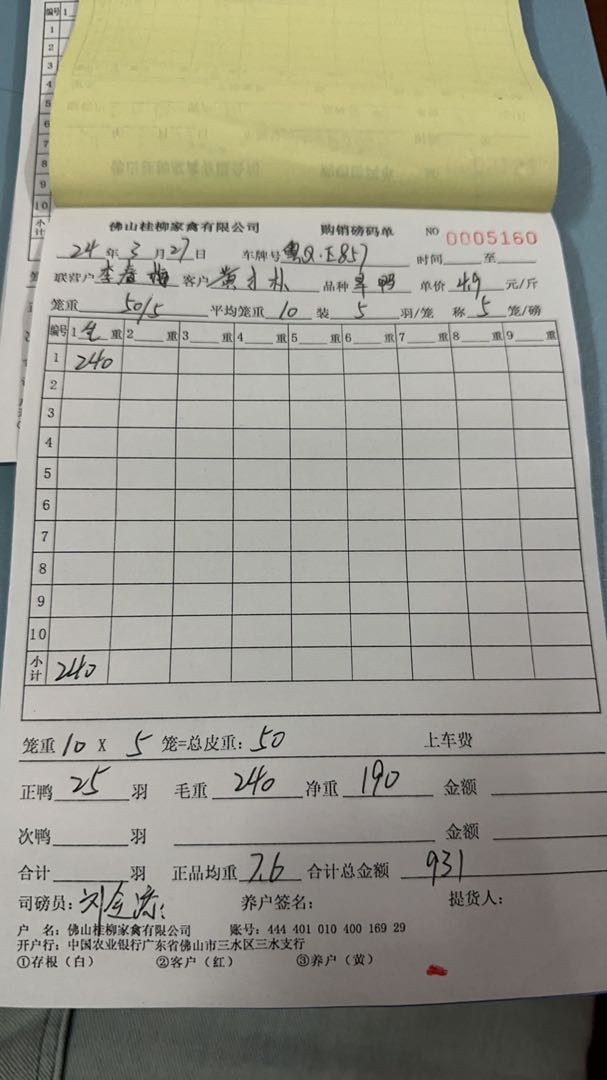 编号 1
1
2
3
4
5
6
7
8
9
10
小计
佛山桂柳家禽有限公司 购销磅码单 NO 0005160
24年3月27日 车牌号粤Q·E857 时间 至
联营户李春梅 客户黄才朴 品种 鸭 单价4.9元/斤
笼重50/5 平均笼重10装5羽/笼 称5笼/磅
编号 1毛重 2 重 3 重 4 重 5 重 6 重 7 重 8 重 9 重
1 240
2
3
4
5
6
7
8
9
10
小计 240
笼重10 X 5笼=总皮重:50 上车费
正鸭25羽 毛重240净重190 金额
次鸭 羽 金额
合计 羽 正品均重7.6合计总金额931
司磅员:刘 养户签名: 提货人:
户 名:佛山桂柳家禽有限公司 账号:444 401 010 400 169 29
开户行:中国农业银行广东省佛山市三水区三水支行
①存根(白) ②客户(红) ③养户(黄)